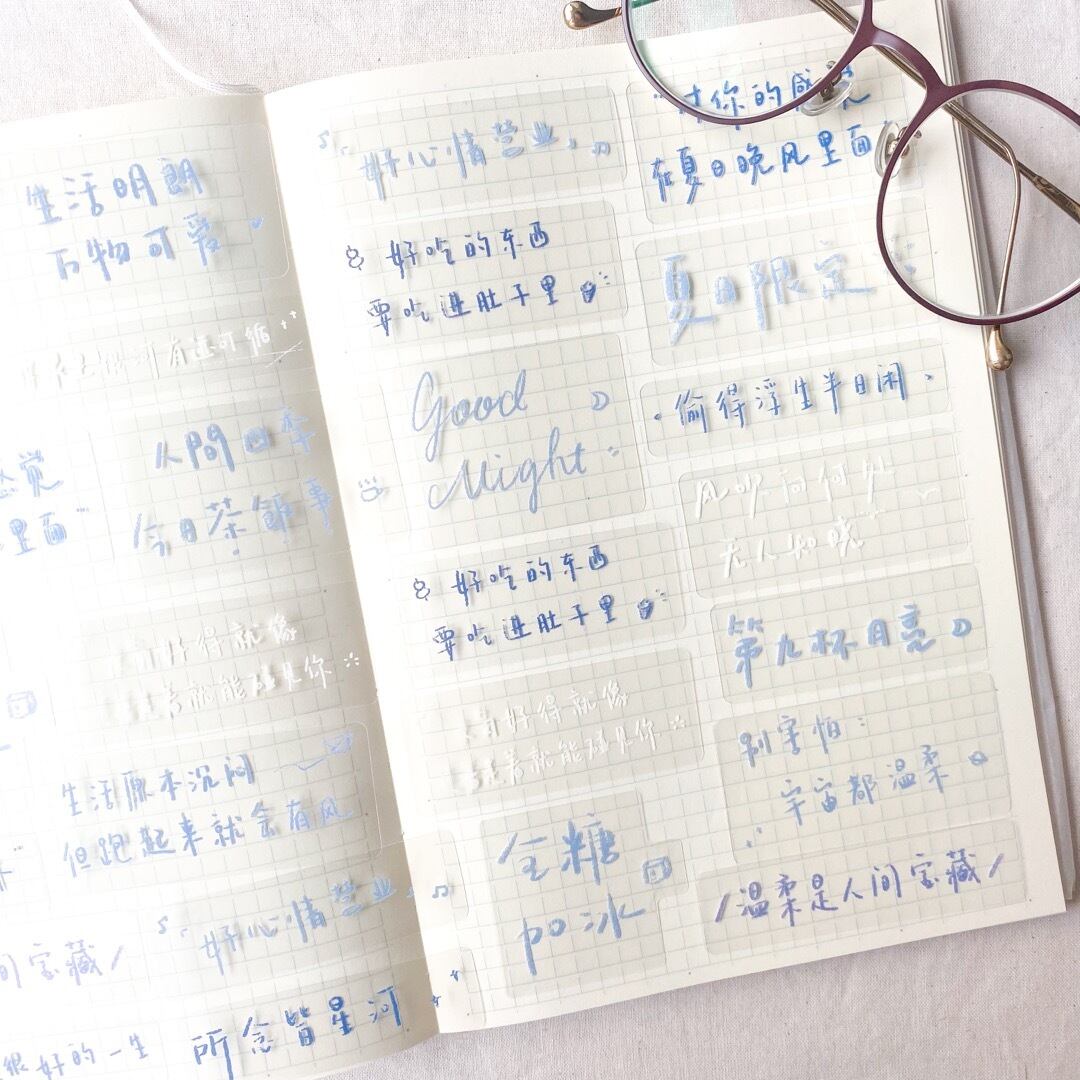 生活明朗
万物可爱
有迹可循
人間四季
今日茶飯事
觉
里面
好得就像
着就能碰见你
生活原本沉闷
但跑起来就会有风
好心情营业
间宝藏/
很好的一生
所念皆星河
好心情营业
好吃的东西
要吃进肚子里
Good
Night
好吃的东西
要吃进肚子里
好得就像
着就能碰见你
全糖
加冰
对你的感觉
在夏日晚风里面
夏日限定
·偷得浮生半日闲·
风吹向何处
无人知晓
第九杯月亮
别害怕:
宇宙都温柔
/温柔是人间宝藏/